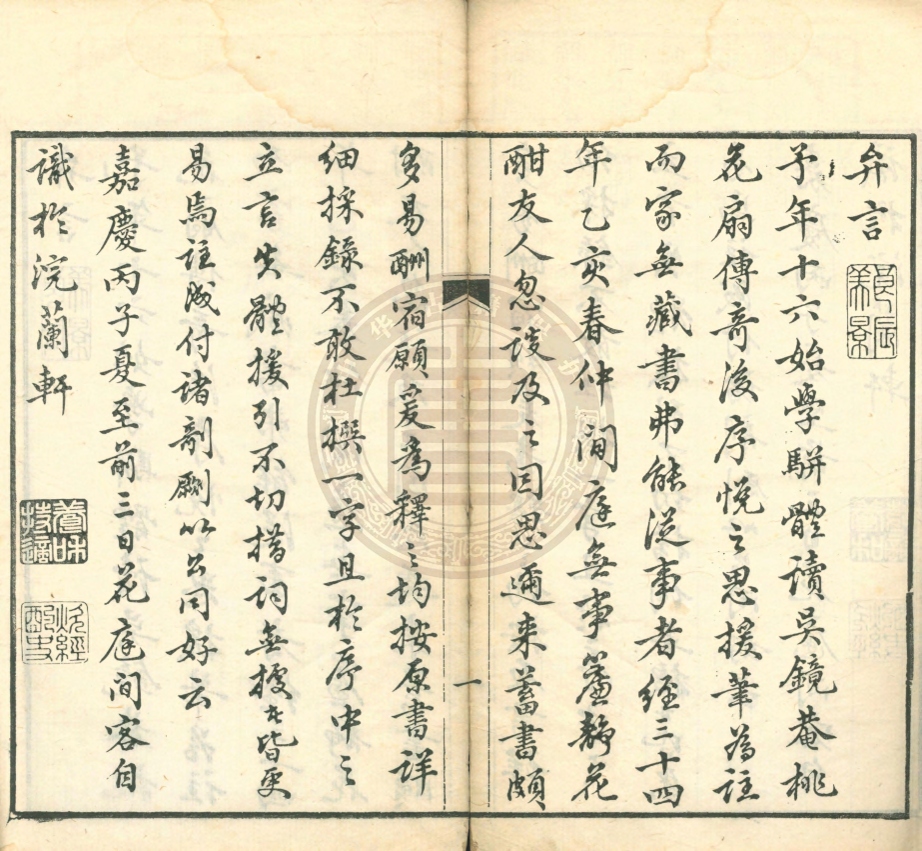 弁言
予年十六始學駢體讀吳鏡菴桃
花扇傳奇後序悅之思援筆為註
而家無藏書弗能從事者經三十四
年乙亥春仲閒庭無事簾靜花
酣友人忽談及之因思邇來蓄書頗
一
多易酬宿願爰為釋之均按原書詳
細採錄不敢杜撰一字且於序中之
立言失體援引不切措詞無據者皆更
易焉註成付諸剞劂以公同好云
嘉慶丙子夏至前三日花庭閒客自
識於浣蘭軒